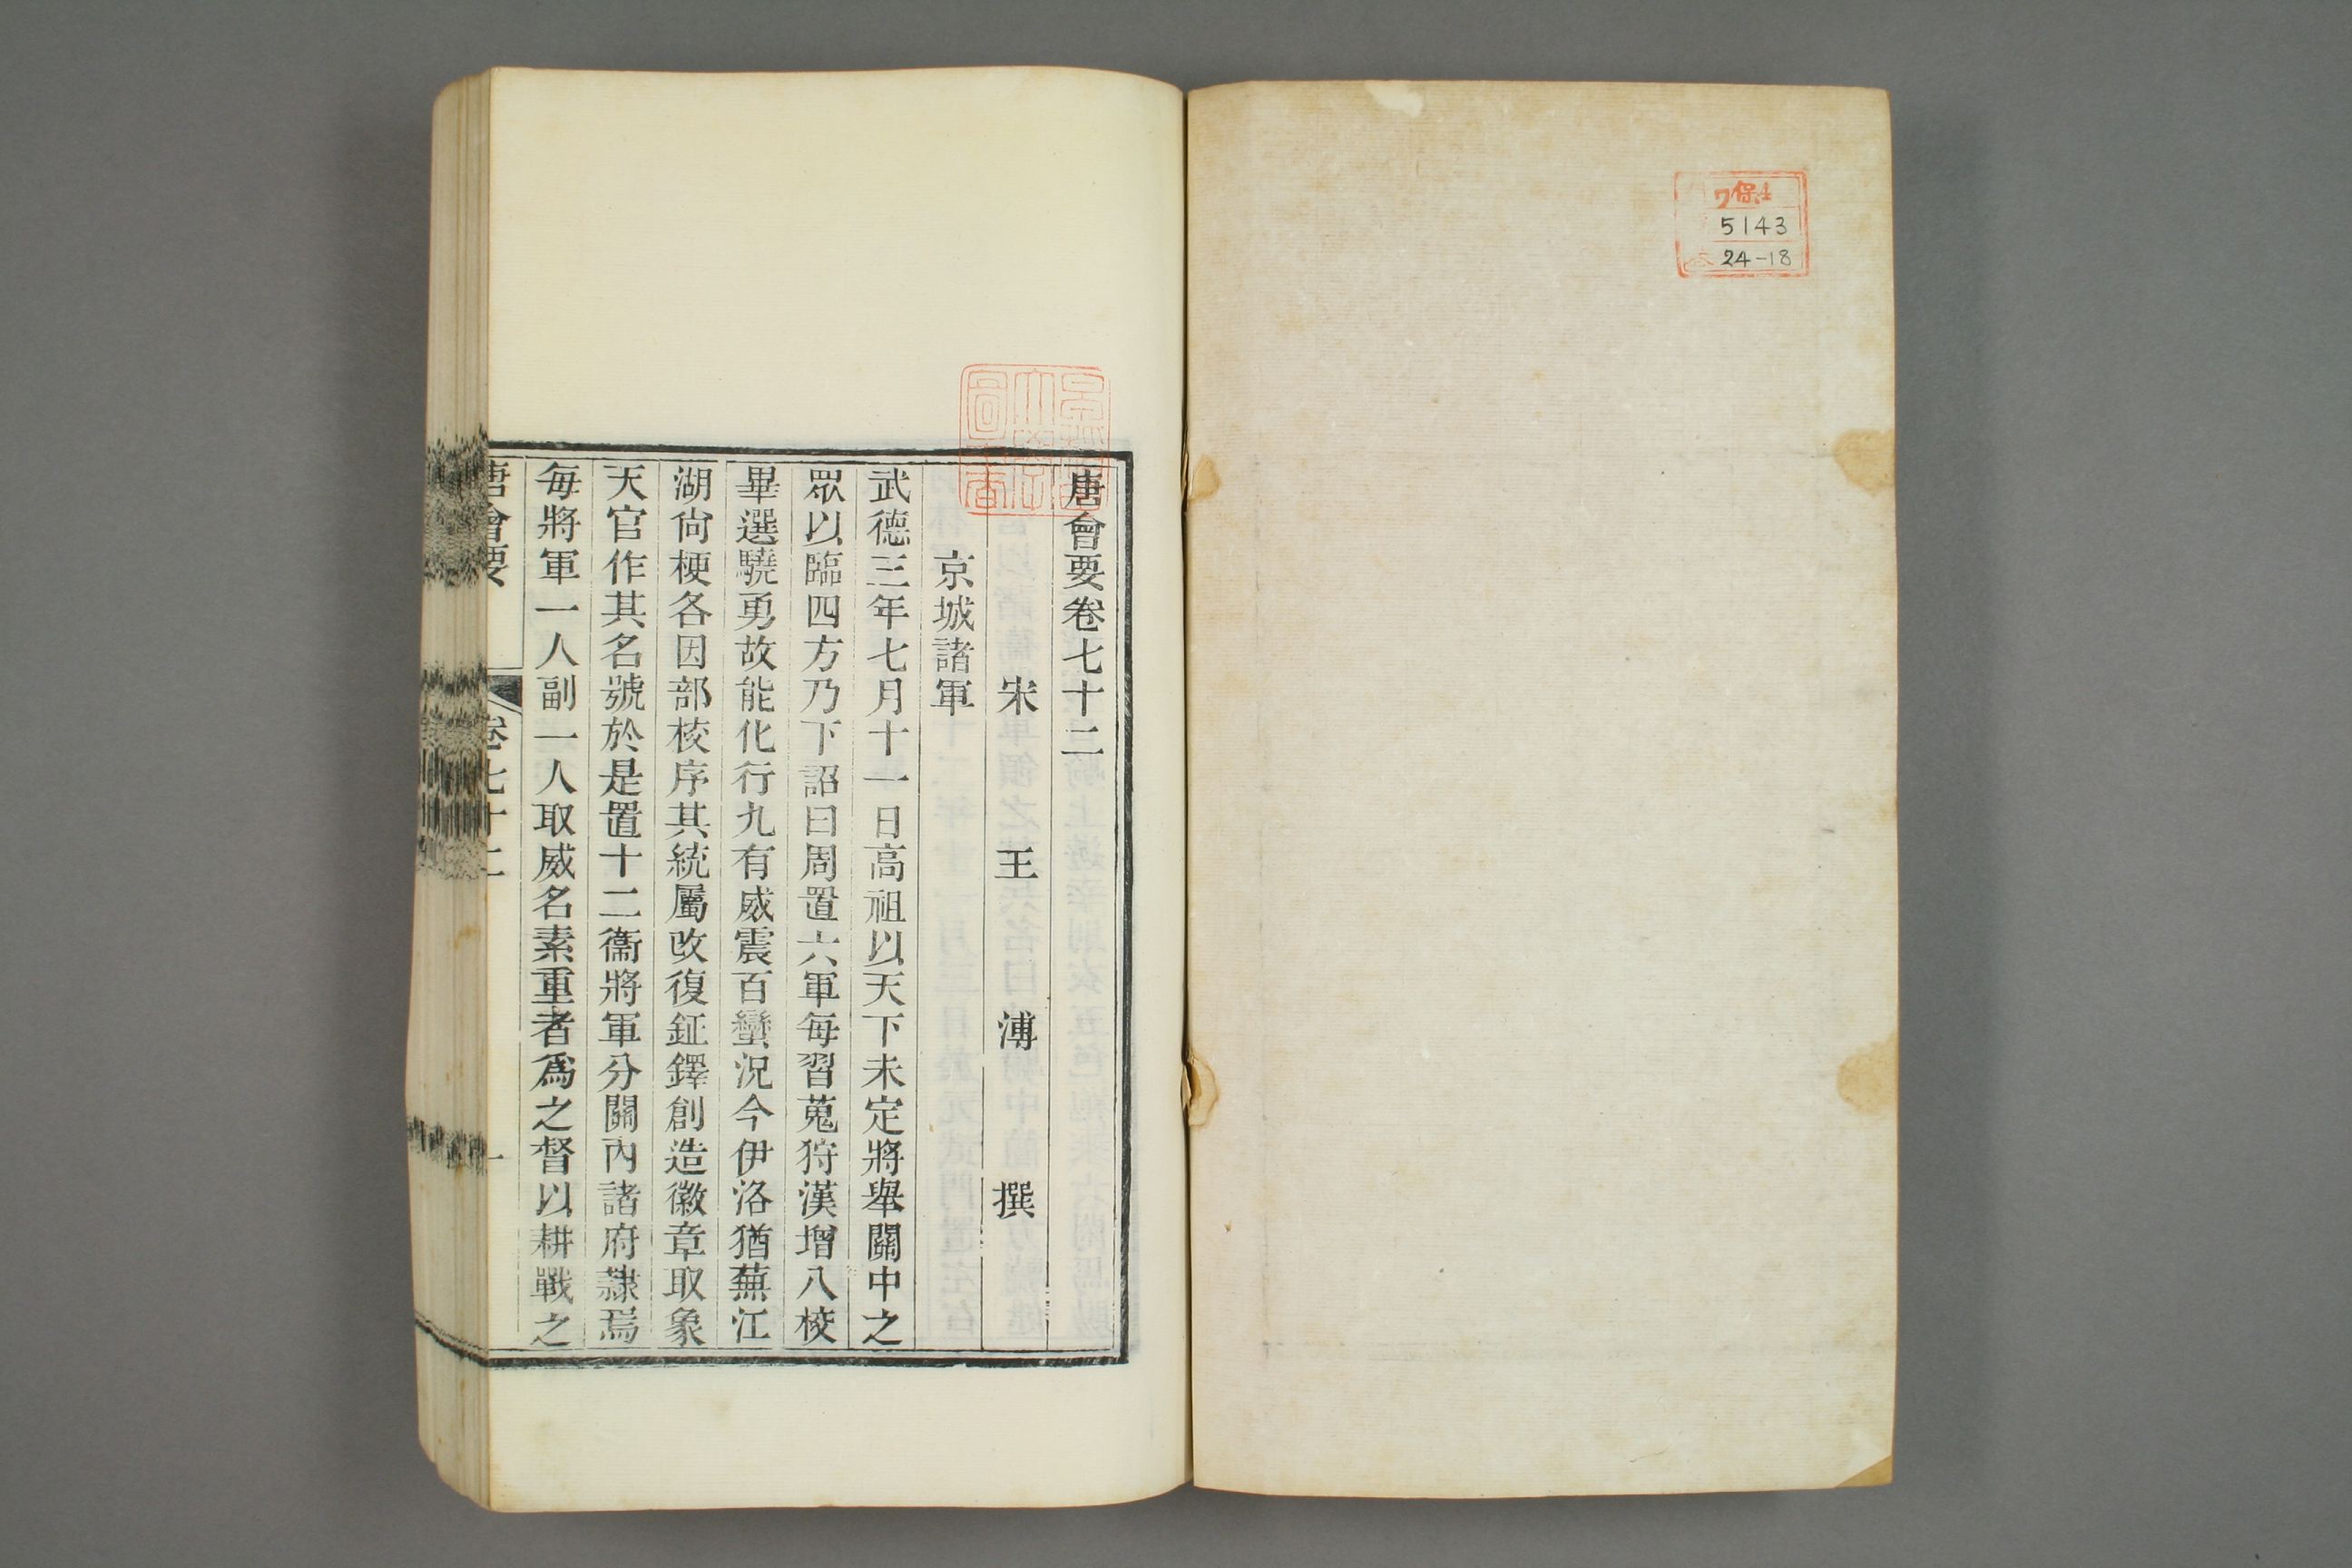 ワ保4
5143
24-18
唐會要卷七十二
宋王溥撰
京城諸軍
武德三年七月十一日高祖以天下未定將舉關中之
眾以臨四方乃下詔曰周置六軍每習蒐狩漢增八校
畢選驍勇故能化行九有威震百蠻況今伊洛猶蕪江
湖尙梗各因部校序其統屬改復鉦鐸創造徽章取象
天官作其名號於是置十二衞將軍分關內諸府隷焉
每將軍一人副一人取威名素重者爲之督以耕戰之
唐會要 卷七十二 一